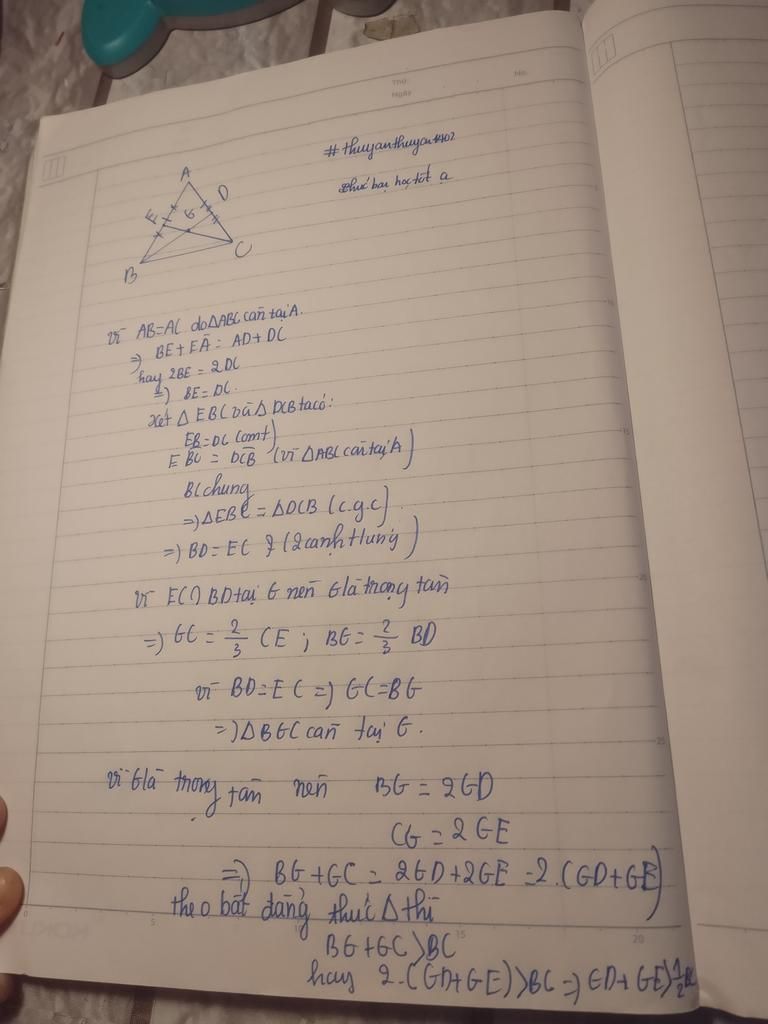 Thứ
Ngày
No.
#thuyanthuyan1402
Chúc bạn học tốt ạ
A
D
E
G
B
C
Vì AB=AC do ΔABC cân tại A.
=> BE+EA = AD+DC
hay 2BE = 2DC
=> BE=DC.
Xét ΔEBC và ΔDCB ta có:
EB=DC (cmt)
EBC = DCB (vì ΔABC cân tại A)
BC chung
=> ΔEBC = ΔDCB (c.g.c)
=> BD=EC (2 cạnh t/ưng)
Vì EC∩BD tại G nên G là trọng tâm
=> GC = 2/3 CE ; BG = 2/3 BD
Vì BD=EC => GC=BG
=> ΔBGC cân tại G.
Vì G là trọng tâm nên BG = 2GD
CG = 2GE
=> BG+GC = 2GD+2GE = 2.(GD+GE)
theo bất đẳng thức Δ thì
BG+GC>BC
hay 2.(GD+GE)>BC => GD+GE>1/2BC
5
15
20
15
25